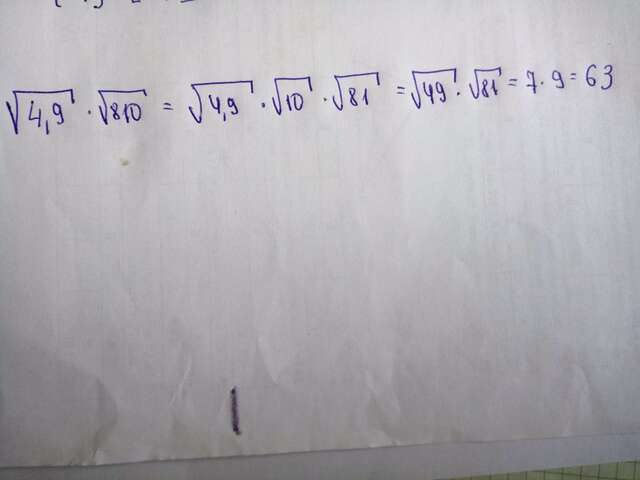 √4,9 · √810 = √4,9 · √10 · √81 = √49 · √81 = 7 · 9 = 63